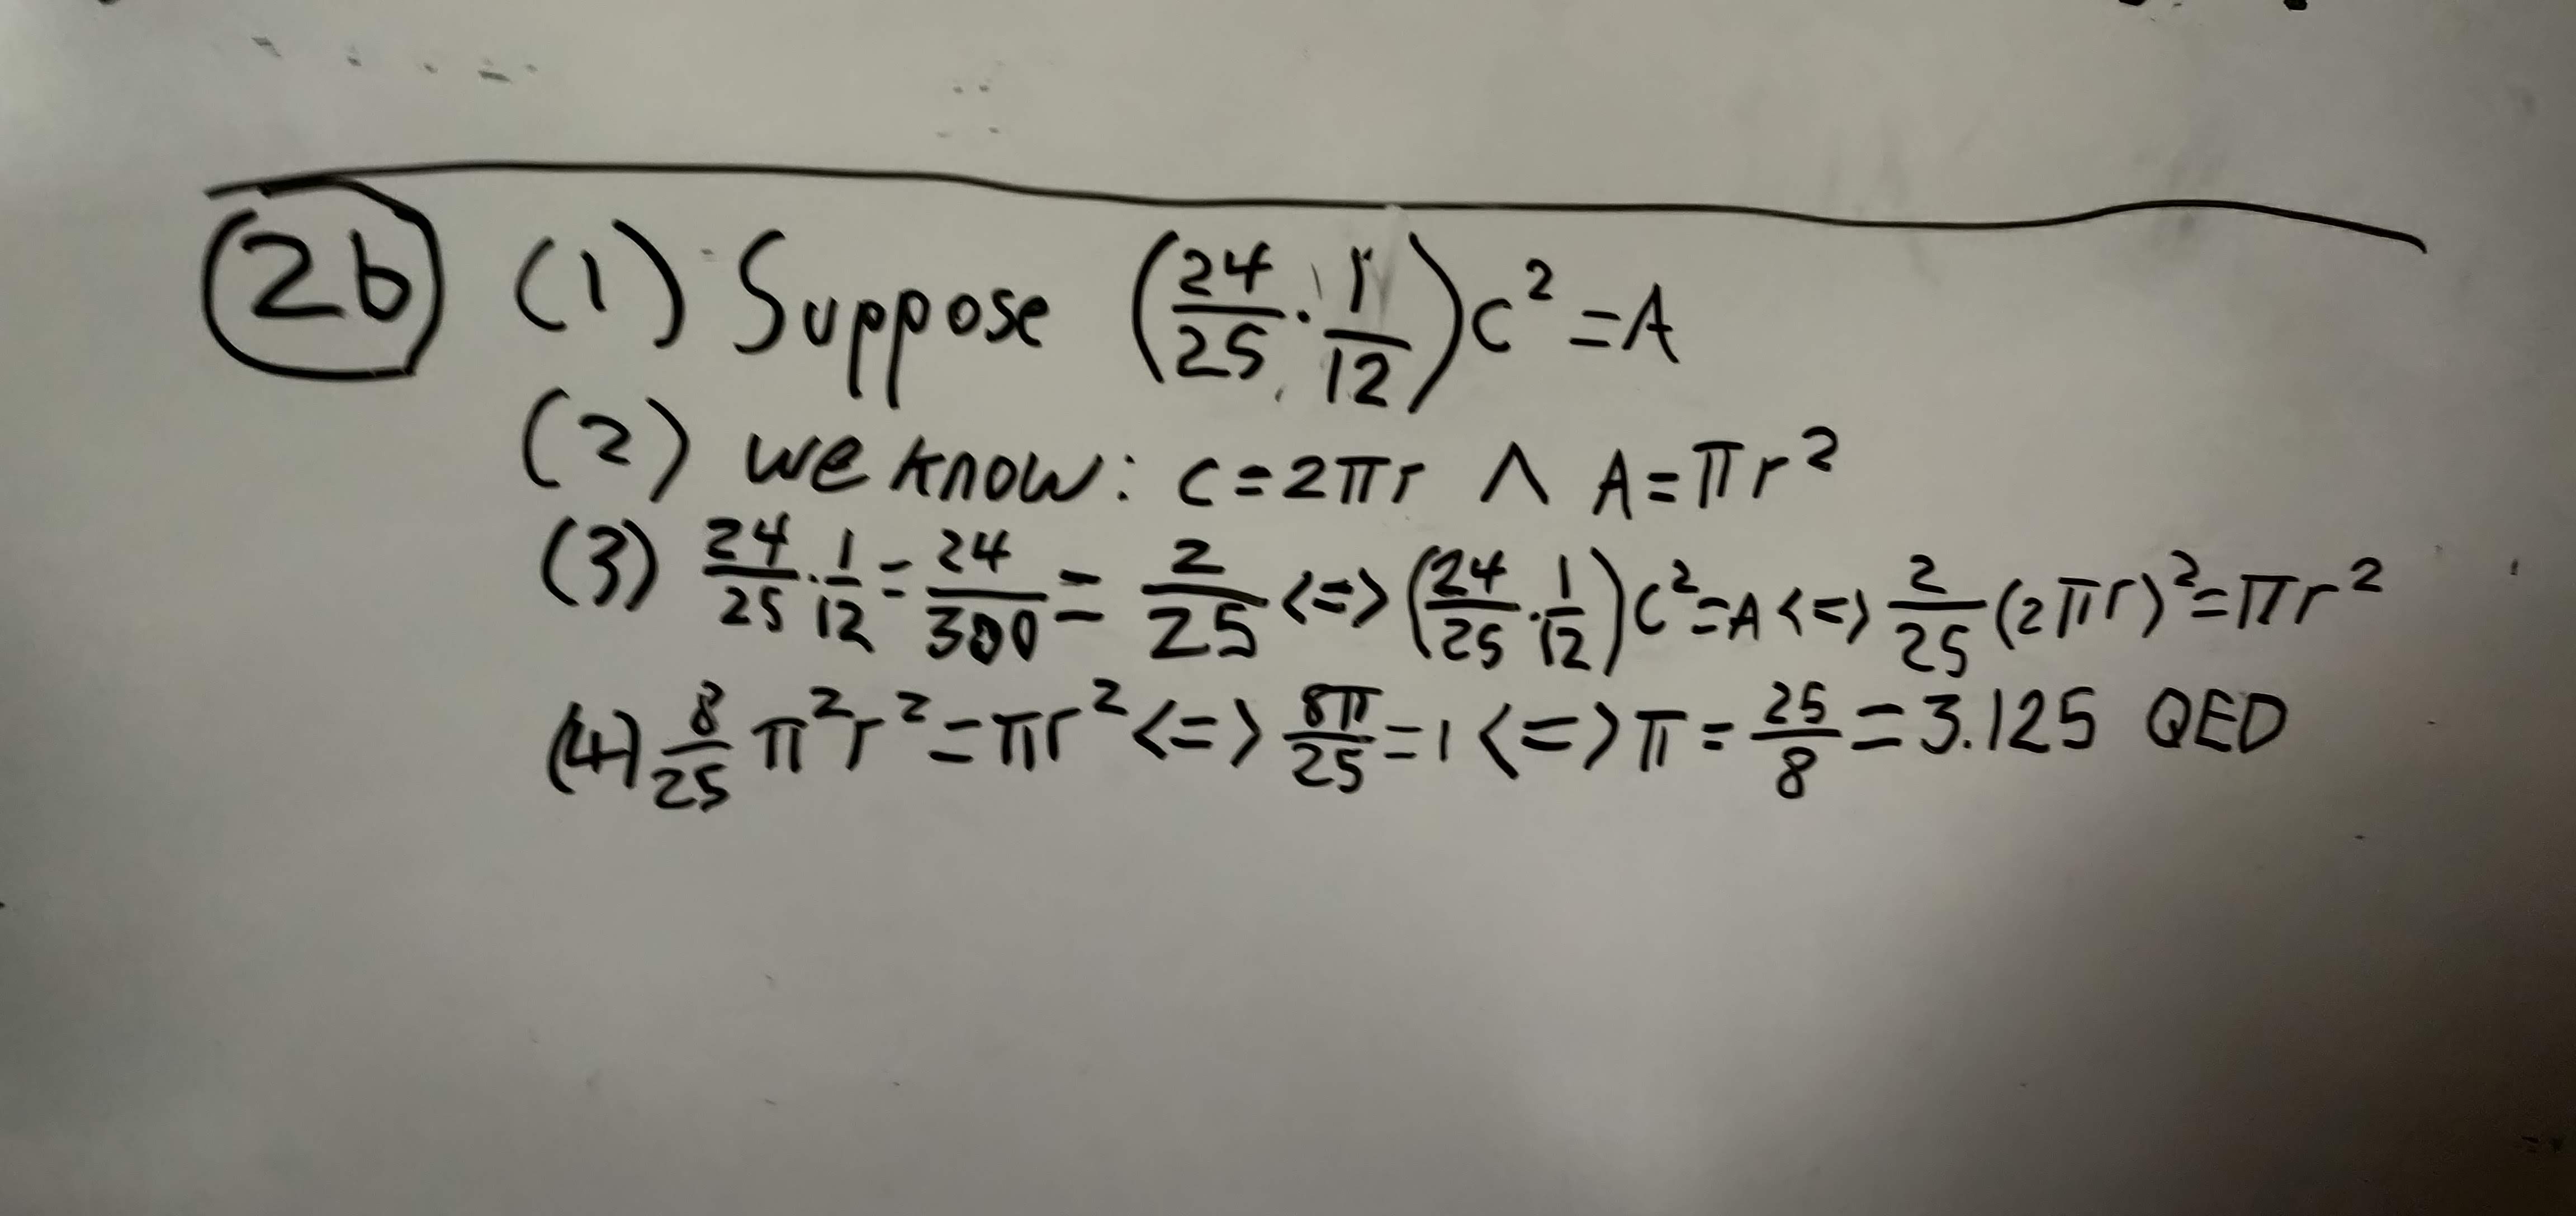 2b (1) Suppose (24/25 · 1/12)c² = A
(2) we know: c = 2πr ∧ A = πr²
(3) 24/25 · 1/12 = 24/300 = 2/25 <=> (24/25 · 1/12)c² = A <=> 2/25 (2πr)² = πr²
(4) 8/25 π²r² = πr² <=> 8π/25 = 1 <=> π = 25/8 = 3.125 QED